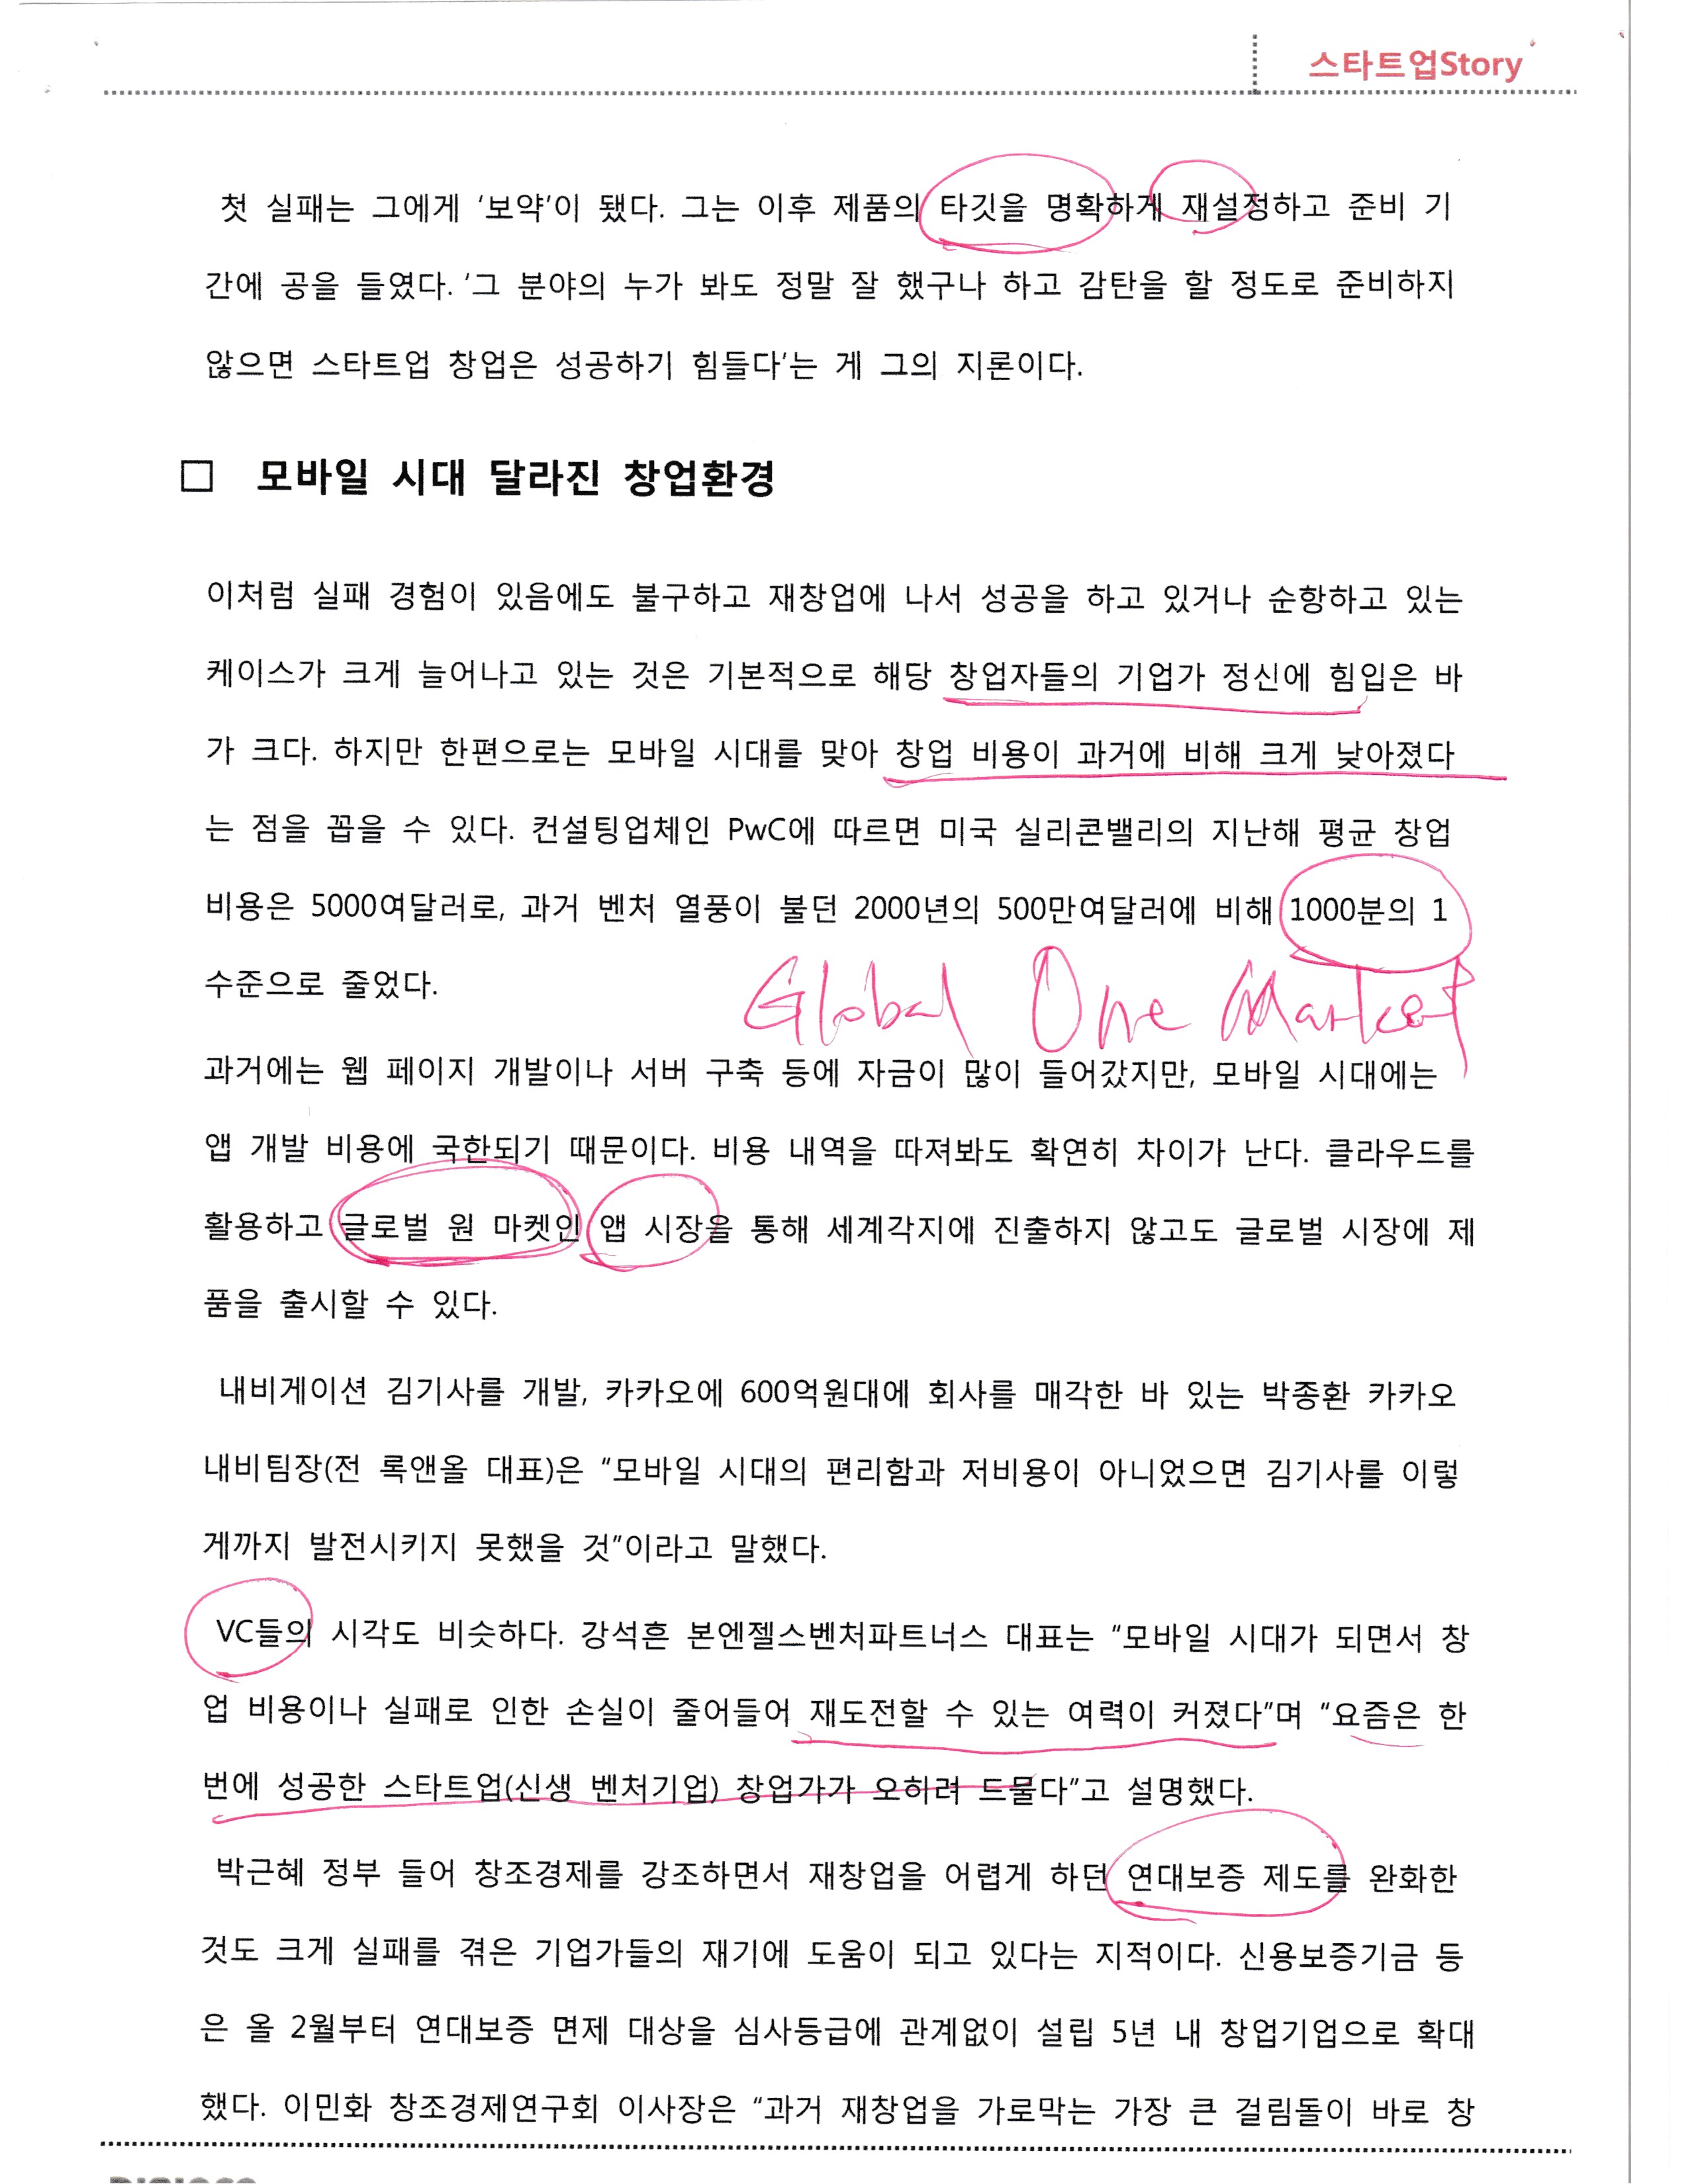 스타트업Story
첫 실패는 그에게 '보약'이 됐다. 그는 이후 제품의 타깃을 명확하게 재설정하고 준비 기
간에 공을 들였다. '그 분야의 누가 봐도 정말 잘 했구나 하고 감탄을 할 정도로 준비하지
않으면 스타트업 창업은 성공하기 힘들다'는 게 그의 지론이다.
□ 모바일 시대 달라진 창업환경
이처럼 실패 경험이 있음에도 불구하고 재창업에 나서 성공을 하고 있거나 순항하고 있는
케이스가 크게 늘어나고 있는 것은 기본적으로 해당 창업자들의 기업가 정신에 힘입은 바
가 크다. 하지만 한편으로는 모바일 시대를 맞아 창업 비용이 과거에 비해 크게 낮아졌다
는 점을 꼽을 수 있다. 컨설팅업체인 PwC에 따르면 미국 실리콘밸리의 지난해 평균 창업
비용은 5000여달러로, 과거 벤처 열풍이 불던 2000년의 500만여달러에 비해 1000분의 1
수준으로 줄었다.
Global One Market
과거에는 웹 페이지 개발이나 서버 구축 등에 자금이 많이 들어갔지만, 모바일 시대에는
앱 개발 비용에 국한되기 때문이다. 비용 내역을 따져봐도 확연히 차이가 난다. 클라우드를
활용하고 글로벌 원 마켓인 앱 시장을 통해 세계각지에 진출하지 않고도 글로벌 시장에 제
품을 출시할 수 있다.
내비게이션 김기사를 개발, 카카오에 600억원대에 회사를 매각한 바 있는 박종환 카카오
내비팀장(전 록앤올 대표)은 "모바일 시대의 편리함과 저비용이 아니었으면 김기사를 이렇
게까지 발전시키지 못했을 것"이라고 말했다.
VC들의 시각도 비슷하다. 강석흔 본엔젤스벤처파트너스 대표는 "모바일 시대가 되면서 창
업 비용이나 실패로 인한 손실이 줄어들어 재도전할 수 있는 여력이 커졌다"며 "요즘은 한
번에 성공한 스타트업(신생 벤처기업) 창업가가 오히려 드물다"고 설명했다.
박근혜 정부 들어 창조경제를 강조하면서 재창업을 어렵게 하던 연대보증 제도를 완화한
것도 크게 실패를 겪은 기업가들의 재기에 도움이 되고 있다는 지적이다. 신용보증기금 등
은 올 2월부터 연대보증 면제 대상을 심사등급에 관계없이 설립 5년 내 창업기업으로 확대
했다. 이민화 창조경제연구회 이사장은 "과거 재창업을 가로막는 가장 큰 걸림돌이 바로 창